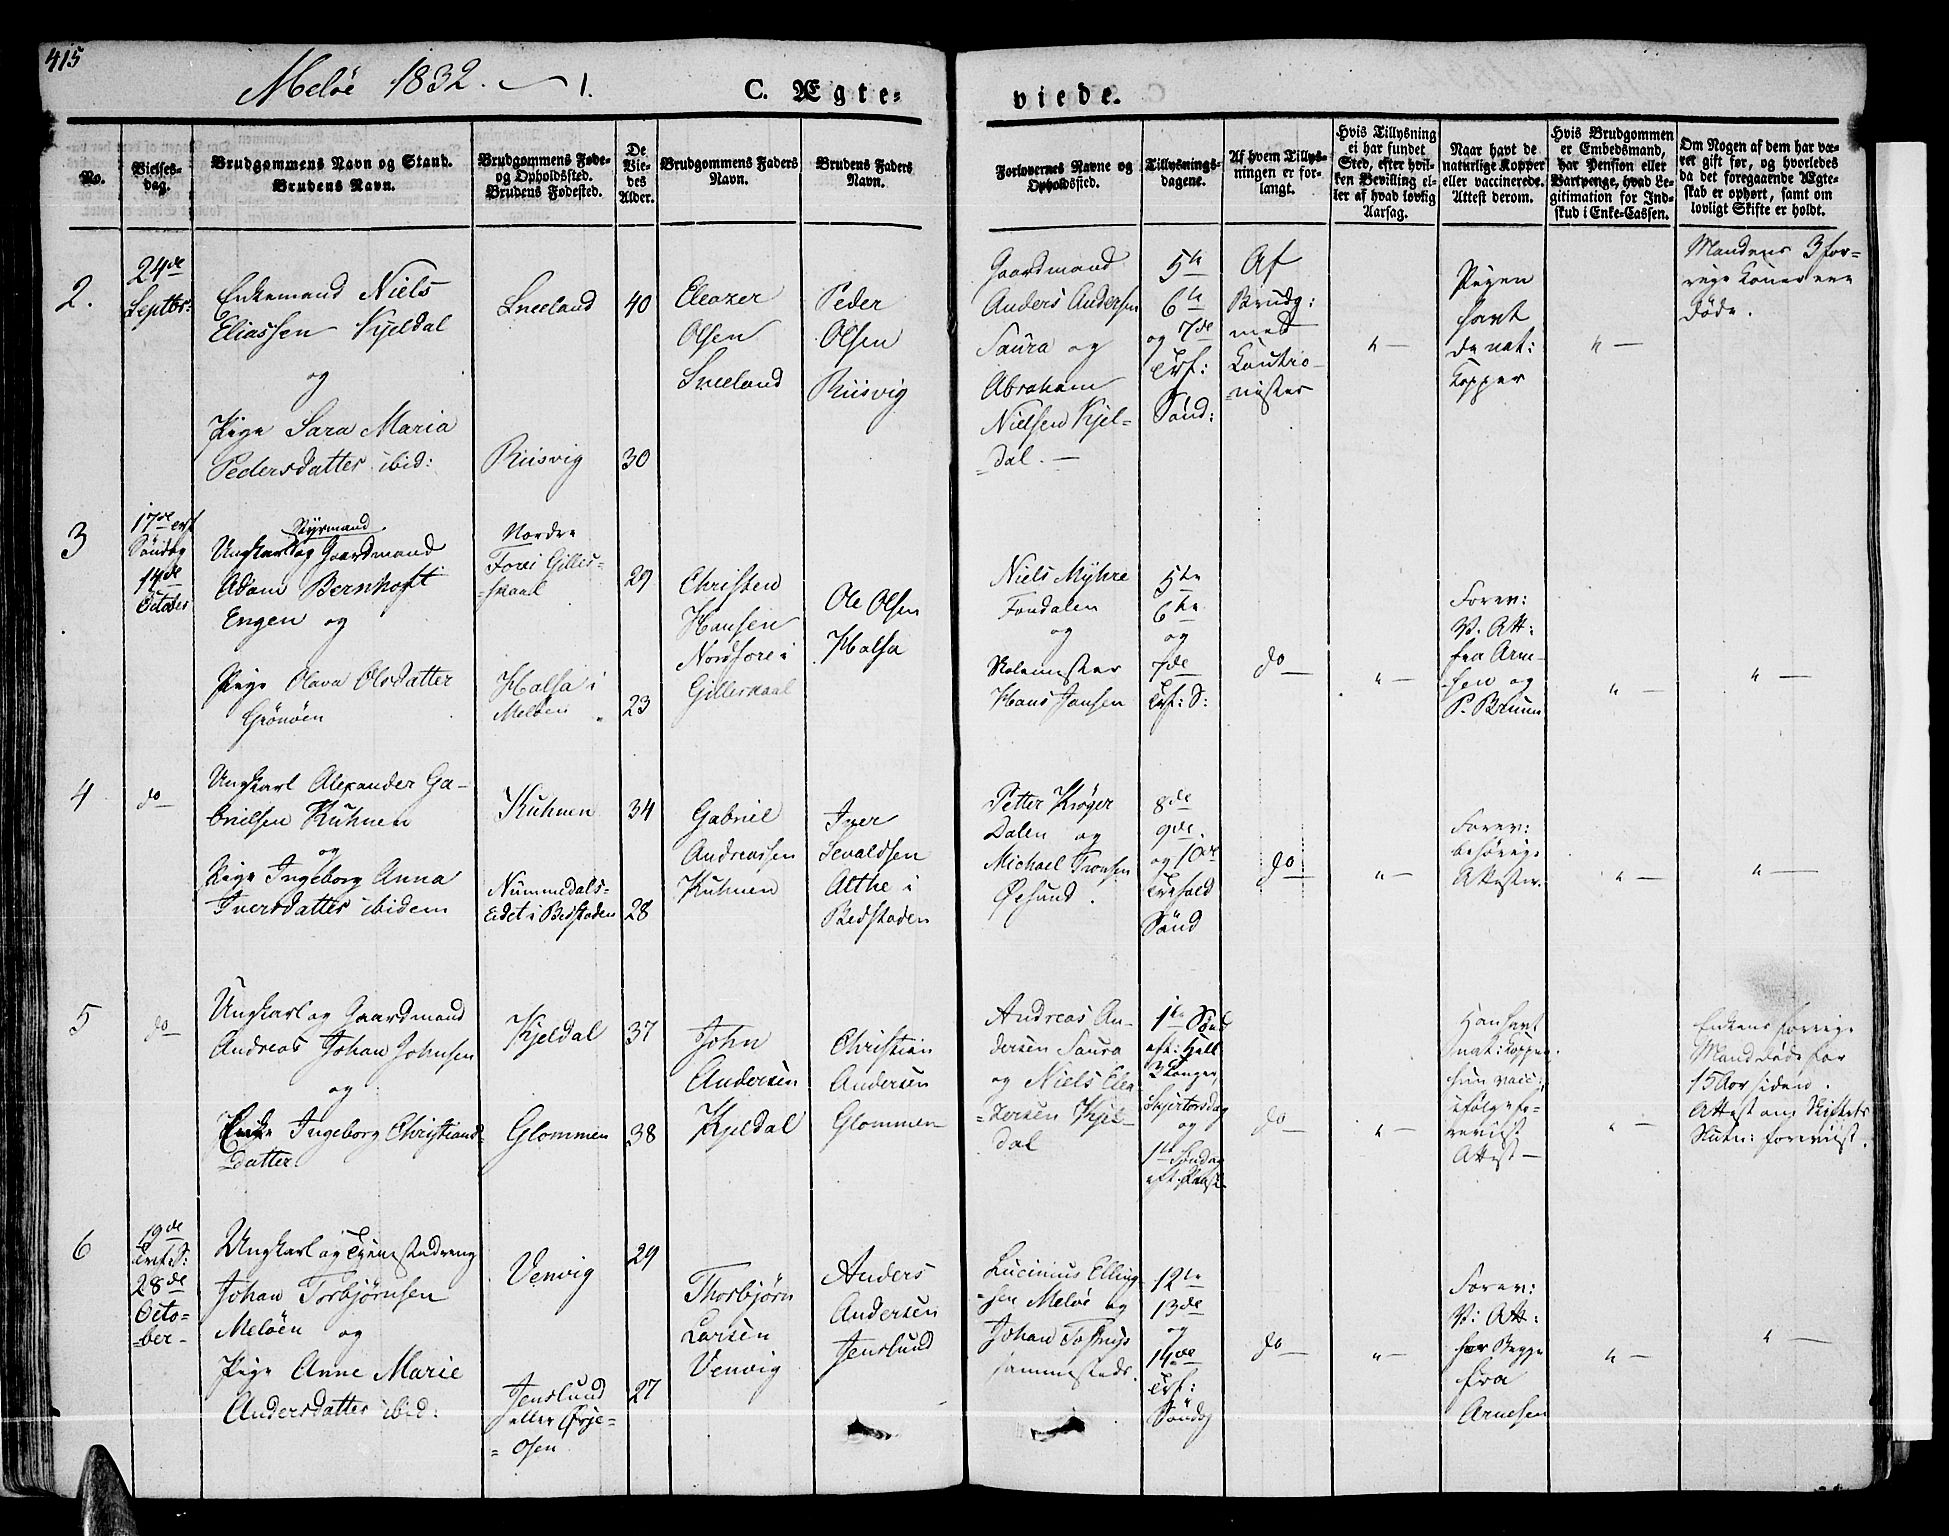 415
Meløe 1832. 1.
C. Ægte=
viede.
No.
Vielses-
dag.
Brudgommens Navn og Stand.
Brudens Navn.
Brudgommens Føde-
og Opholdssted.
Brudens Fødested.
De
Vie-
des
Alder.
Brudgommens Faders
Navn.
Brudens Faders
Navn.
Forlovernes Navne og
Opholdssted.
Tillysnings-
dagene.
Af hvem Tillys-
ningen er for-
langt.
Hvis Tillysning
ei har fundet
Sted, efter hvil-
ken Bevilling el-
ler af hvad lovlig
Aarsag.
Naar havt de
naturlige Kopper
eller vaccinerede.
Attest derom.
Hvis Brudgommen
er Embedsmand,
har Pension eller
Vartpenge, hvad Le-
gitimation for Ind-
skud i Enke-Cassen.
Om Nogen af dem har væ-
ret gift før, og hvorledes
da det foregaaende Ægte-
skab er ophørt, samt om
lovligt Skifte er holdt.
2.
24de
Septbr:
Enkemand Niels
Eliassen Kjeldal
og
Pige Sara Maria
Pedersdatter ibid:
Sneeland
Riisvig
40
30
Eleazer
Olsen
Sneeland
Peder
Olsen
Riisvig
Gaardmand
Anders Andersen
Saura og
Abraham
Nielsen Kjel-
dal. —
5te
6te
og 7de
Trf:
Sønd:
Af
Brudg:
med
Cautio-
nister
" —
Pigen
havt
de nat:
Kopper
" —
Mandens 3 for-
rige Koner ere
døde.
3
17de
Søndag
14de
October
Styrmand
Ungkarl og Gaardmand
Adam Bernhoft
Engen og
Pige Olava Olsdatter
Grönöen
Nordre
Fore i Gilles-
kaal
Halsa i
Meløen
29
23
Christen
Hansen
Nordfore i
Gilleskaal
Ole Olsen
Halsa
Niels Mÿhre
Fondalen
og
Skolemester
Hans Jansen
5te
6te
og
7de
Trf: S:
do —
" —
Forev:
V: Att:
fra Arne-
sen og
P. Bruun
" —
" —
4
do —
Ungkarl Alexander Ga-
brielsen Kuhnen
og
Pige Ingeborg Anna
Iversdatter ibidem
Kuhnen
Nummedals-
Eidet i Bedstaden
34
28
Gabriel
Andreassen
Kuhnen
Iver
Sevaldsen
Althe i
Bedstaden
Petter Krøger
Dalen og
Michael Tronsen
Øesund.
8de
9de
og 10de
Sønd
do —
" —
Forev:
behørige
Attester.
" —
" —
5
do —
Ungkarl og Gaardmand
Andreas Johan Johnsen
og
Enke Ingeborg Christians-
Datter
Kjeldal
Glommen
37
38
John
Andersen
Kjeldal
Christian
Andersen
Glommen
Andreas An-
dersen Saura
og Niels Elea-
zersen Kjel-
dal
1te Sønd
eft: Hell
3 Konger,
Skjertorsdag
og
1te Søndag
eft. Paask.
do —
" —
Han havt
nat: Kopper.
hun vacc:
ifølge fo-
reviist
Attest —
" —
Enkens forrige
Mand døde for
15 Aar siden.
Attest om Skiftets
Slutn: foreviist.
6
19de
28de
Octo-
ber —
Ungkarl og Tjenestedreng
Johan Torbjørnsen
Meløen og
Pige Anne Marie
Andersdatter ibid:
Venvig
Jenslund
eller Ørje-
osen
29
27
Thorbjørn
Larsen
Venvig
Anders
Andersen
Jenslund
Lucinius Elling-
sen Meløe og
Johan
sammesteds.
12te
13de
og
14de
Trf:
Søndag
do —
" —
Forev:
V: Att:
for Begge
fra
Arnesen
" —
" —